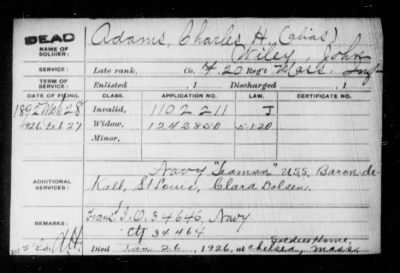 DEAD
NAME OF SOLDIER:
Adams, Charles H. (alias)
Wiley, John
SERVICE:
Late rank, Co. H, 20 Reg't Mass. Inf
TERM OF SERVICE:
Enlisted , 1 Discharged , 1
DATE OF FILING. CLASS. APPLICATION NO. LAW. CERTIFICATE NO.
1892 Mch 28 Invalid, 1102211 J
1926 Feb 27 Widow, 1242850
Minor,
ADDITIONAL SERVICES:
Navy "Seaman" U.S.S. Baron de
Kalb, St Louis, Clara Dolsen.
REMARKS:
I.O. 34646, Navy
34464
Soldiers Home,
Died Jan 26, 1926, at Chelsea, Mass.